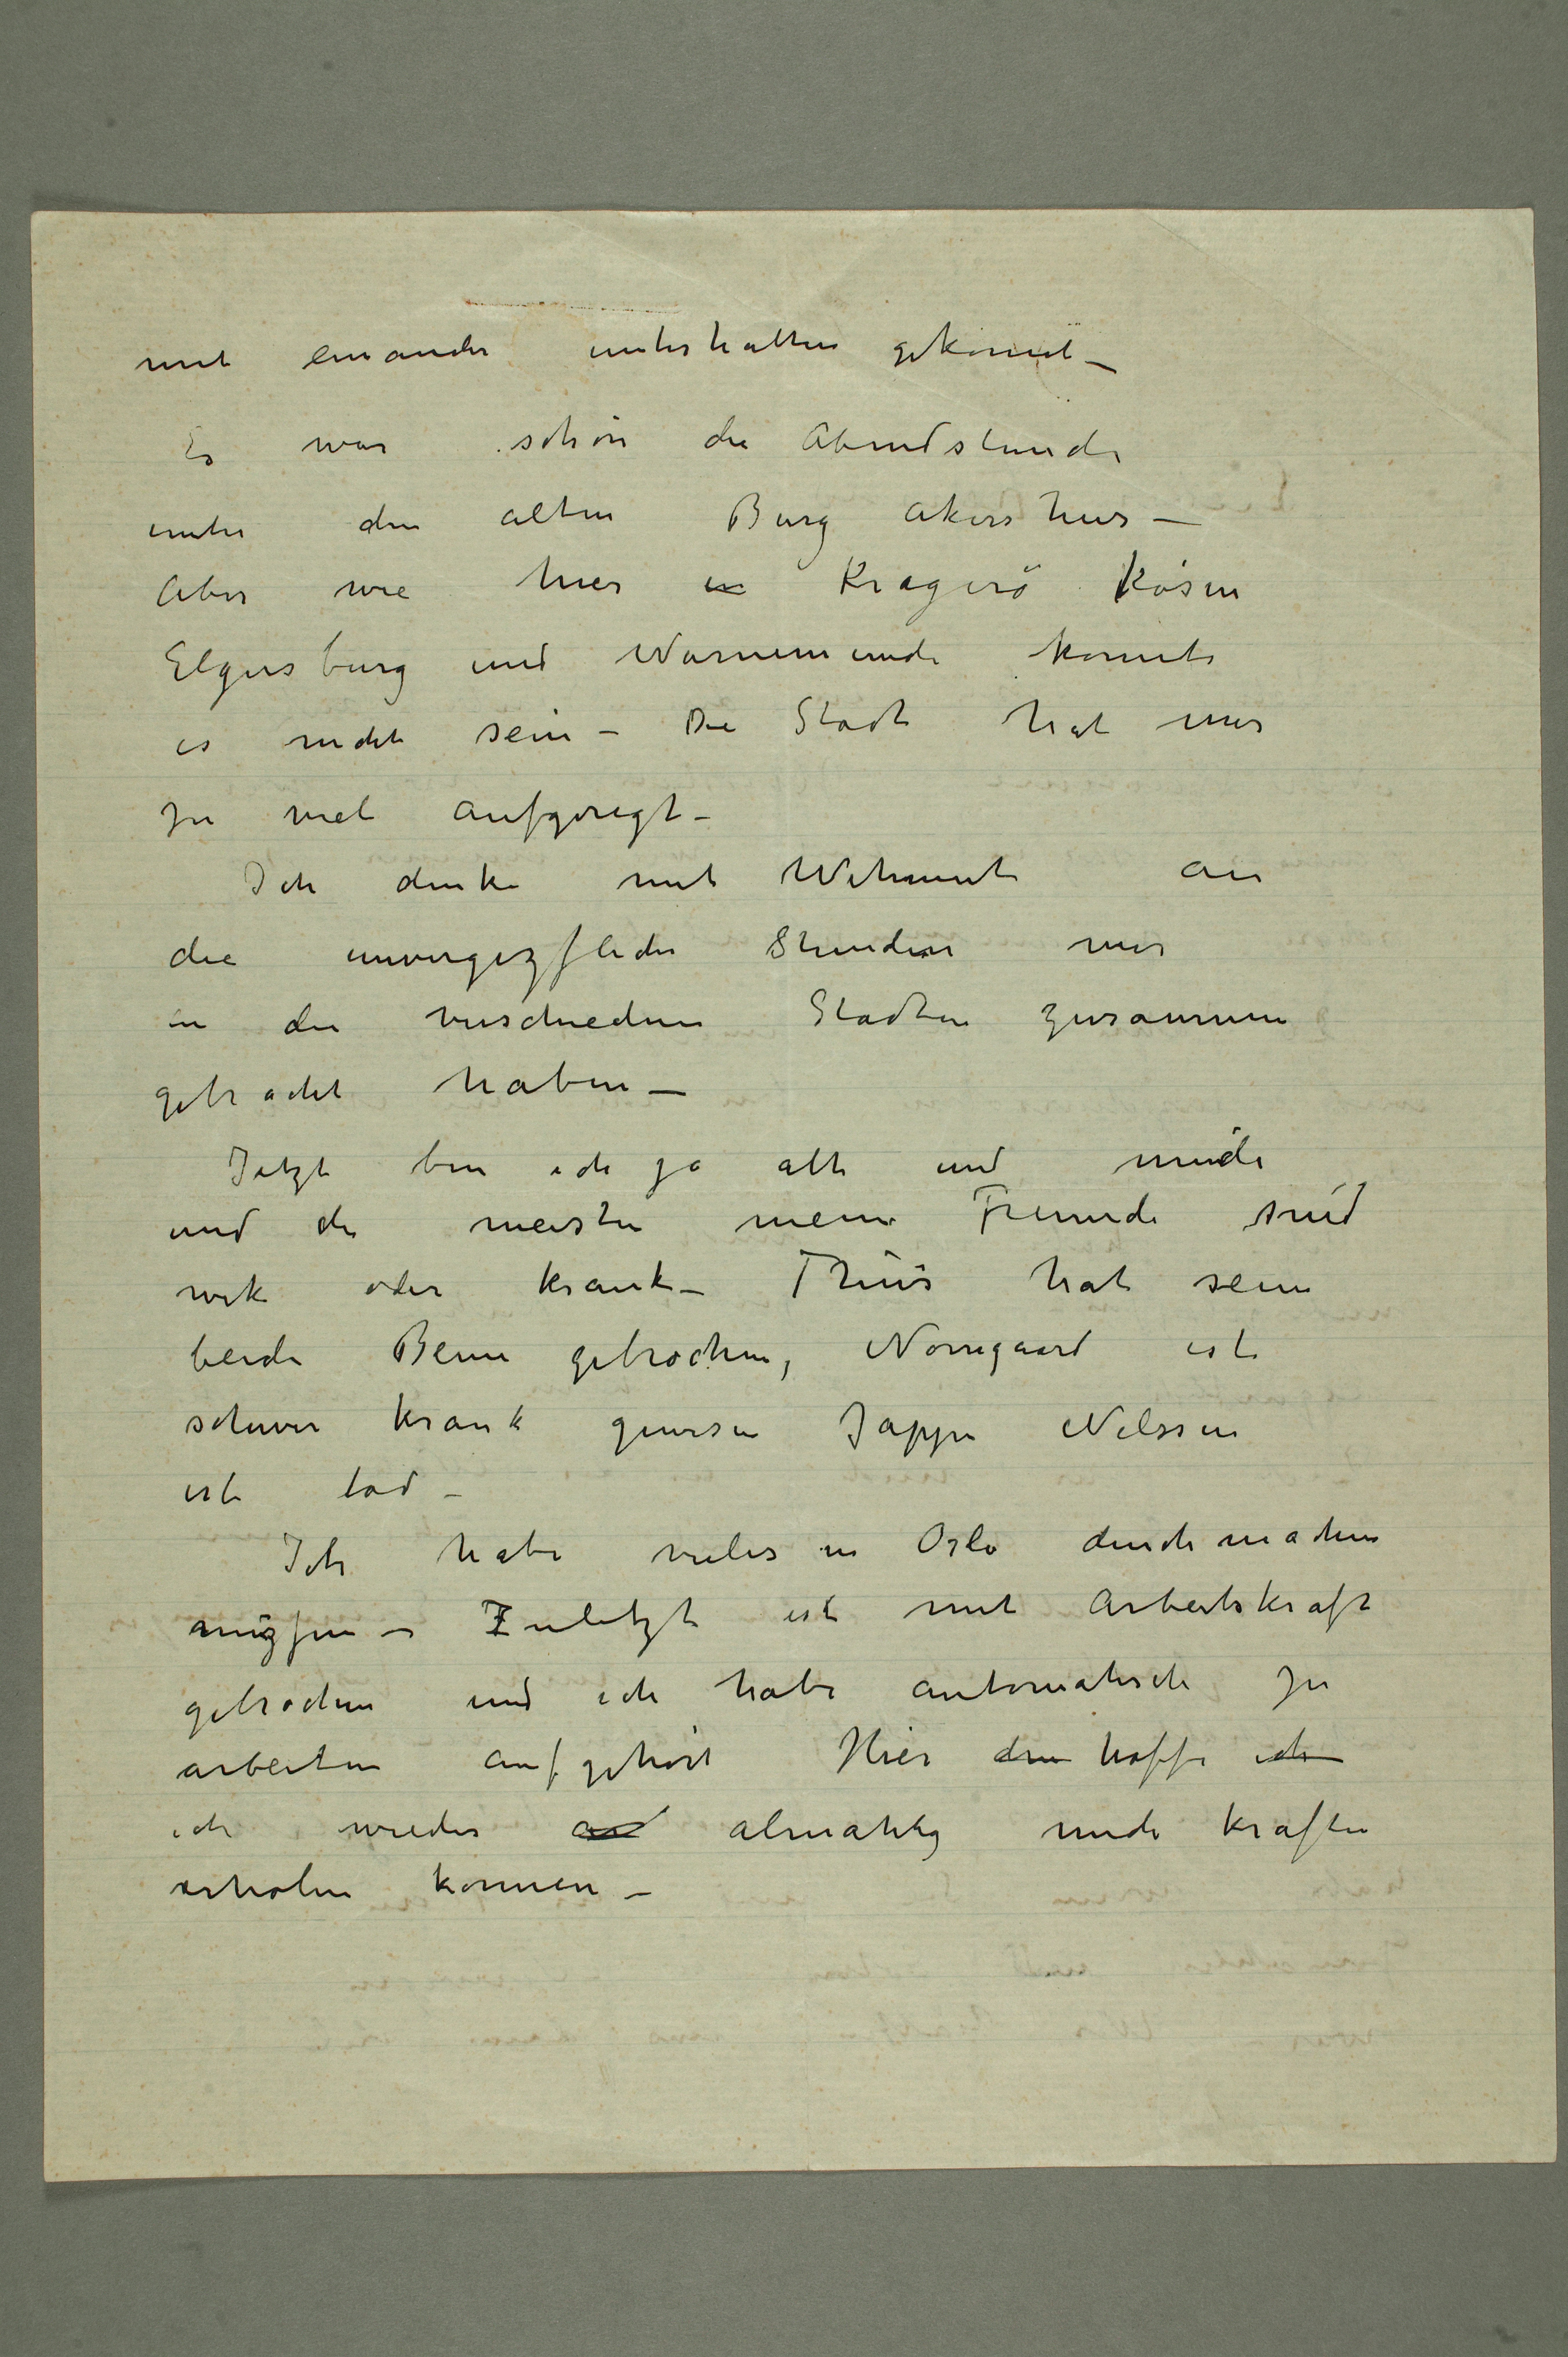 mit einander unterhalten gekonnt –
Es war schön die Abendstunde
unter den alten Burg Akershus –
Aber wie hier in Kragerö Kösen
Elgersburg und Warnemünde konnte
es nicht sein – Die Stadt hat mir
zu viel aufgeregt –
Ich denke mit Wehmut an
die unvergeszfliche Stunden wir
in die verschiedenen Städten zusammen
gebracht haben –
Jetzt bin ich ja alt und müde
und die meisten meine Freunde sind
wek oder krank – Thiis hat seine
beide Beine gebrochen, Nörregaard ist
schwer krank gewesen Jappe Nilssen
ist tod –
Ich habe vieles in Oslo durchmachen
müszfen – Zuletzt ist mit Arbeitskraft
gebrochen und ich habe automatisch zu
arbeiten aufgehört Hier den hoffe ich
ich wieder an almählig mich kräfte
erholen können –